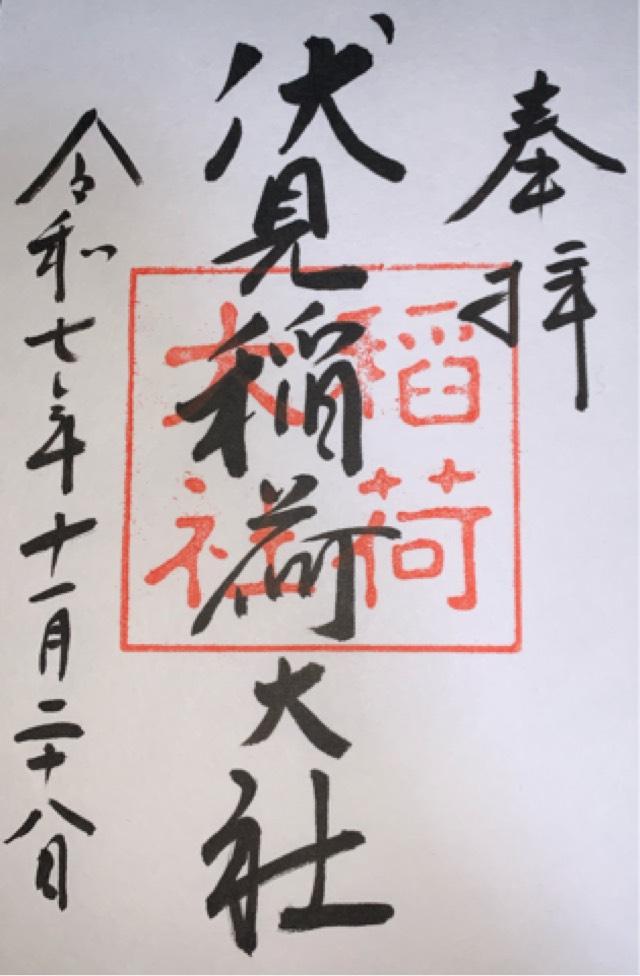 奉拝
伏見稲荷大社
稲荷
大社
令和七年十一月二十八日